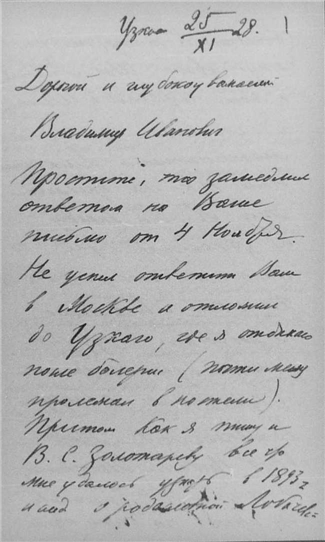 Узкое 25/XI 28.
Дорогой и глубокоуважаемый
Владимир Иванович
Простите, что замедлил
ответом на Ваше
письмо от 4 Ноября.
Не успел ответить Вам
в Москве и отложил
до Узкаго, где я отдыхаю
после болезни (почти месяц
пролежал в постели).
Притом как я пишу и
В. С. Золотареву все что
мне удалось узнать в 1893 г
о родословной Лобачев-